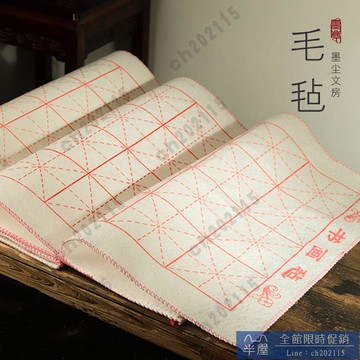 毛毡
墨尘文房
ch202115
ch202115
ch202115
ch202115
ch202115
ch202115
书画毡
半屋
全館限時促銷
Line：ch202115